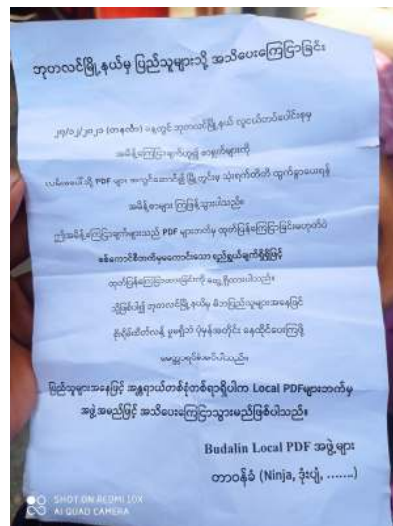 ဘုတလင်မြို့နယ်မှ ပြည်သူများသို့ အသိပေးကြေငြာခြင်း
၂၇/၁၂/၂၀၂၁ (တနင်္လာ) နေ့တွင် ဘုတလင်မြို့နယ် လူငယ်တပ်ပေါင်းစုမှ
အမိန့်ကြေငြာချက်ဟူ၍ စာရွက်များကို
လမ်းမပေါ်သို့ PDF များ အသွင်ဆောင်၍ မြို့တွင်းမှ သုံးရက်တိတိ ထွက်ခွာပေးရန်
အမိန့်စာများ ကြဲဖြန့်သွားပါသည်။
ဤအမိန့်ကြေငြာချက်များသည် PDF များဘက်မှ ထုတ်ပြန်ကြေငြာခြင်းမဟုတ်ပဲ
စစ်ကောင်စီဘက်မှမကောင်းသော ရည်ရွယ်ချက်ရှိရှိဖြင့်
ထုတ်ပြန်ကြေငြာထားခြင်းကို တွေ့ရှိထားပါသည်။
သို့ဖြစ်ပါ၍ ဘုတလင်မြို့နယ်မှ မိဘပြည်သူများအနေဖြင့်
စိုးရိမ်ထိတ်လန့် မှုမရှိဘဲ ပုံမှန်အတိုင်း နေထိုင်ပေးကြဖို့
မေတ္တာရပ်ခံအပ်ပါသည်။
ပြည်သူများအနေဖြင့် အန္တရာယ်တစ်စုံတစ်ရာရှိပါက Local PDFများဘက်မှ
အဖွဲ့အမည်ဖြင့် အသိပေးကြေငြာသွားမည်ဖြစ်ပါသည်။
Budalin Local PDF အဖွဲ့များ
တာဝန်ခံ (Ninja, ဒုံးပျံ, .......)
SHOT ON REDMI 10X
AI QUAD CAMERA